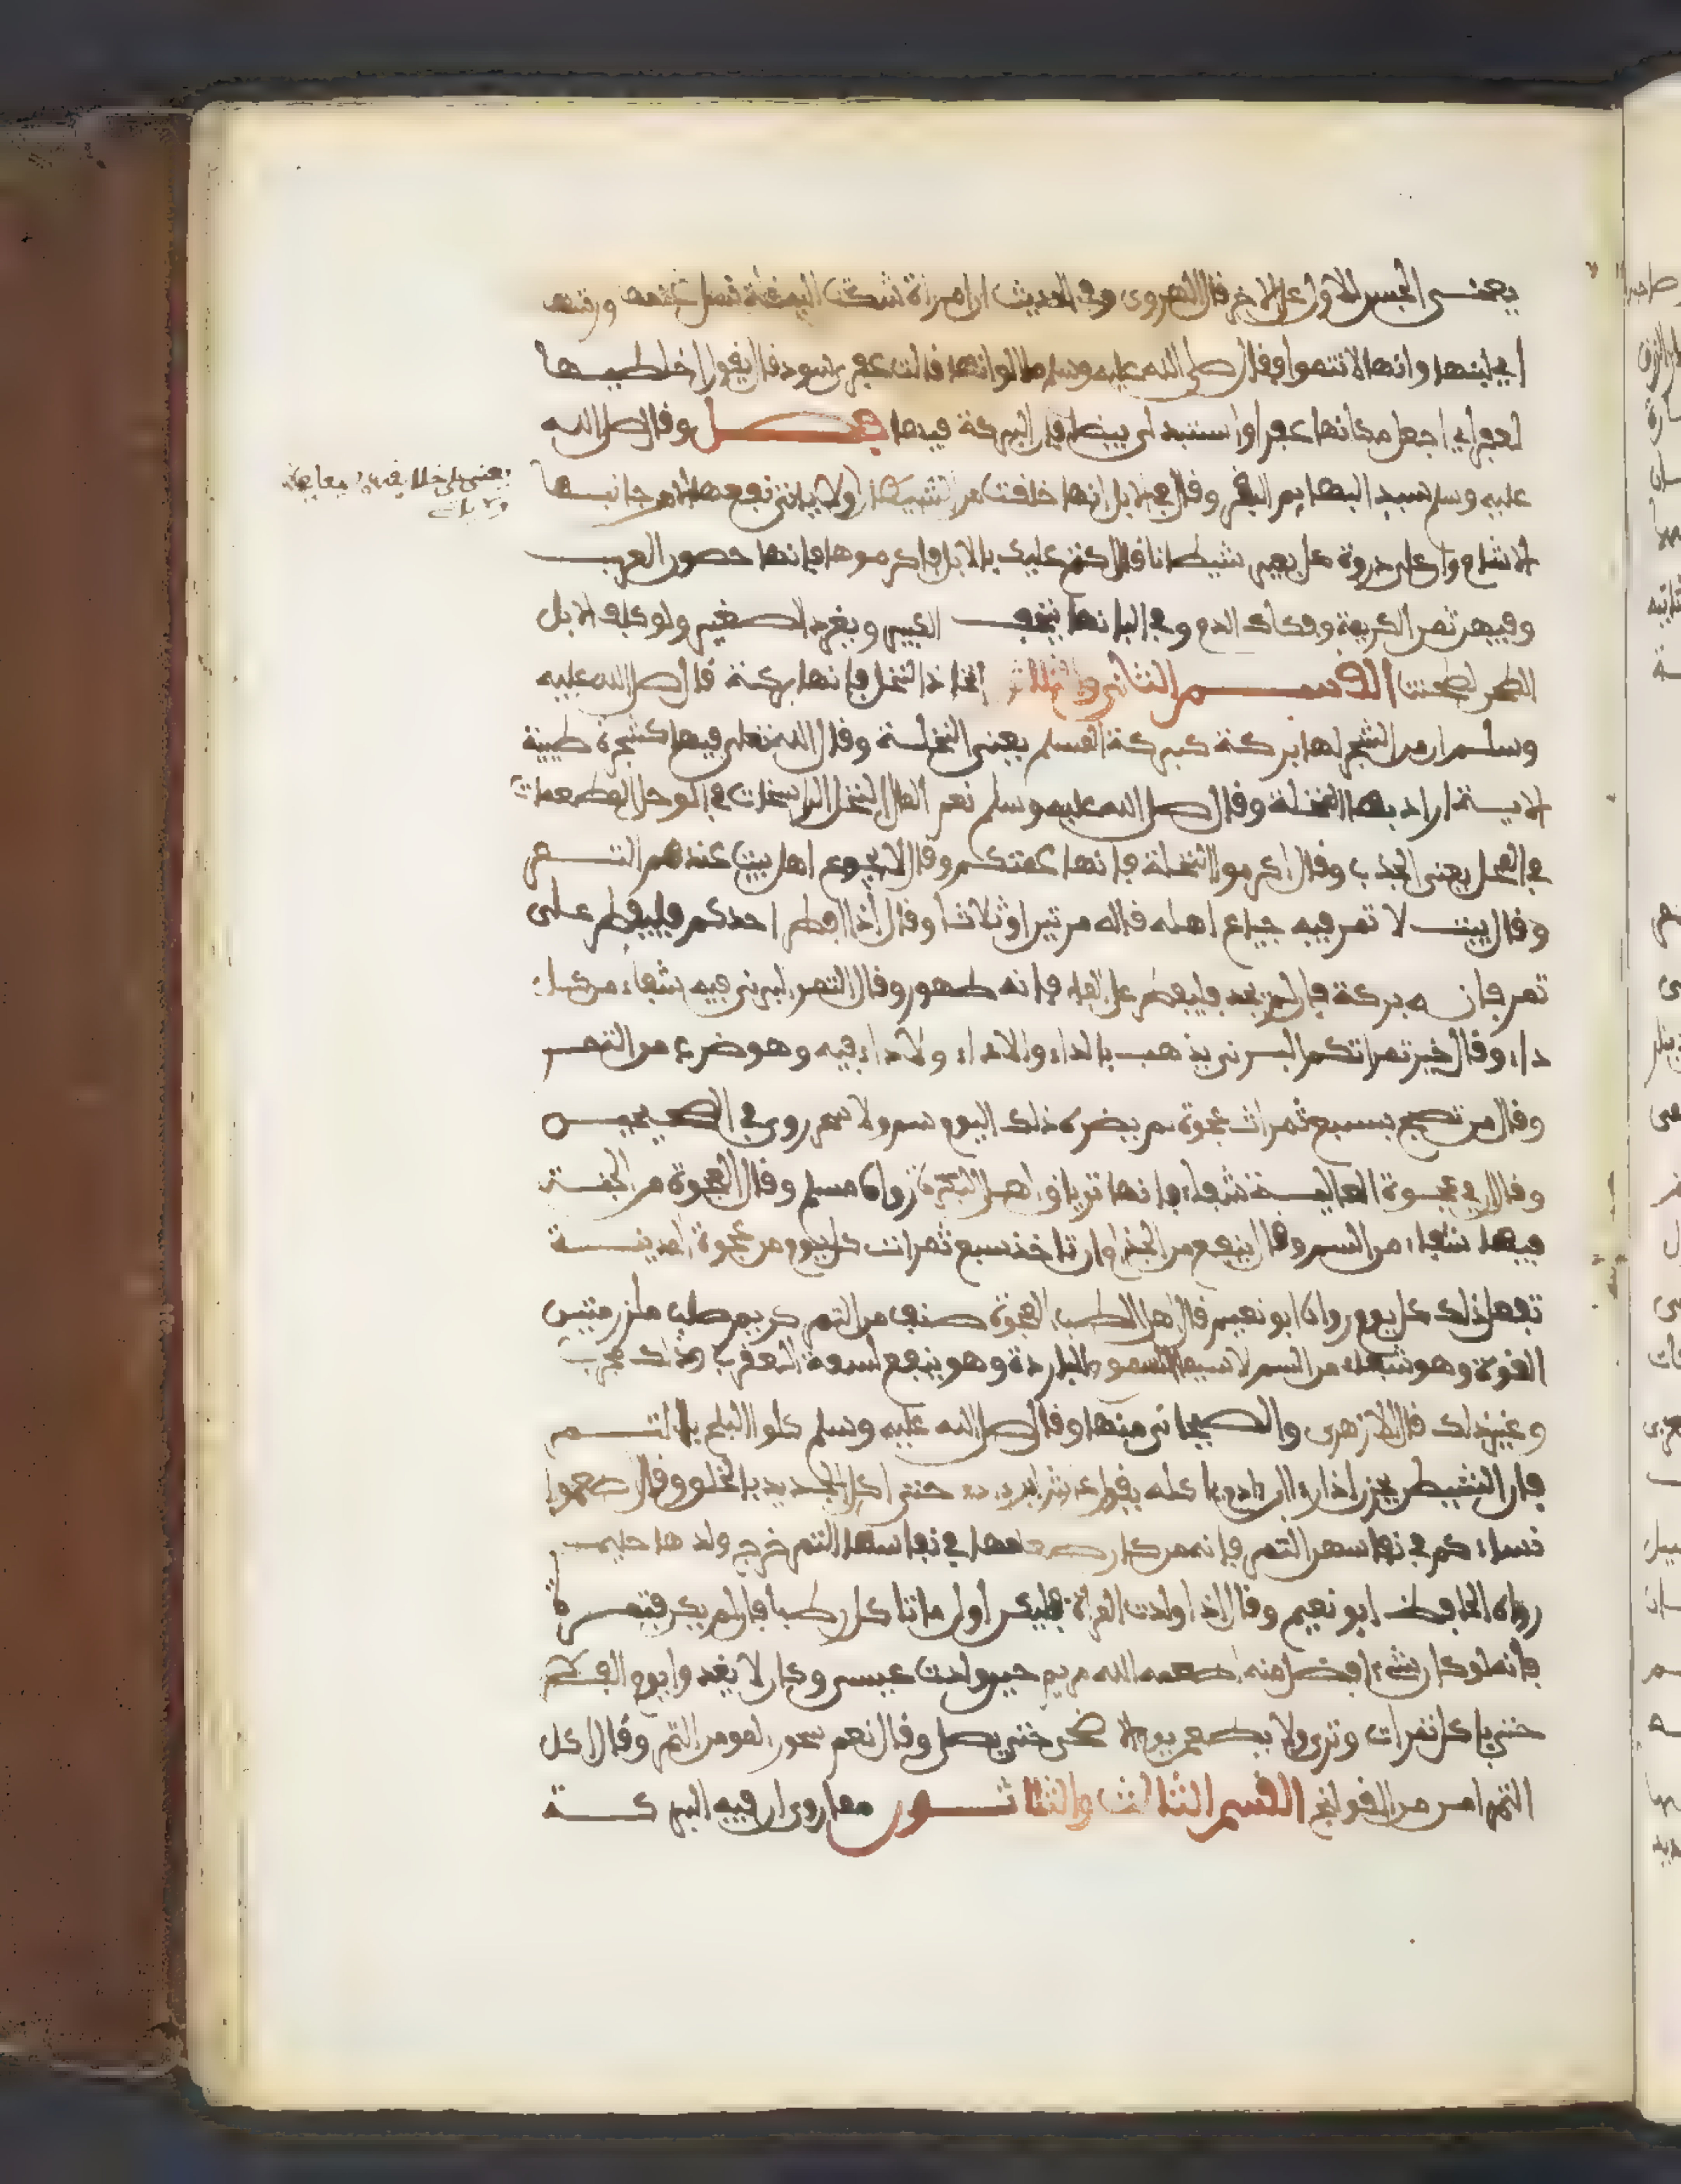 يعنى الجنس الاول على الاخر قال الهروى وفي الحديث ان امراة شكت اليه قلة نسل غنمها ورسلها
اي لبنها وانها لا تنموا فقال صلى الله عليه وسلم ما الوانها قالت سود فقال عفري اخلطيها
بعفر اي اجعل مكانها عفرا واستبدلى بيضا فان البركة فيها فصل وقال صلى الله
عليه وسلم سيد البهايم البقر وقال في الابل انها خلقت من الشياطين ولا ياتى نفعها الا من جانبها
الاشام وان على ذروة كل بعير شيطانا قال عليك بالابل فاكرموها فانها حصون العرب
وفيهن ثمن الكريمة وفكاك الدم وفي البانها يتحف الكبير ويغدى الصغير ولو كلفت الابل
الطحن لطحنت القسم الثاني والثلاثون اتخاذ النخل فانها بركة قال صلى الله عليه
وسلم ان من الشجر لها بركة كبركة المسلم يعنى النخلة وقال الله تعلى فيها كشجرة طيبة
الاية اراد بها النخلة وقال صلى الله عليه وسلم نعم المال النخل الراسخات في الوحل المطعمات
في المحل يعنى الجدب وقال اكرموا النخلة فانها عمتكم وقال لا يجوع اهل بيت عندهم التمر
وقال بيت لا تمر فيه جياع اهله قاله مرتين او ثلاثا وقال اذا افطر احدكم فليفطر على
تمر فانه بركة فان لم يجد فليفطر على الماء فانه طهور وقال التمر البرنى فيه شفاء من كل
داء وقال خير تمراتكم البرنى يذهب بالداء ولا داء فيه وهو ضرب من التمر
وقال من تصبح بسبع تمرات عجوة لم يضره ذلك اليوم سم ولا سحر روى في الصحيحين
وقال ان في عجوة العالية شفاء فانها ترياق اول البكرة رواه مسلم وقال العجوة من الجنة
فيها شفاء من السم وقال ينفع من الجذام ان تاخذ سبع تمرات كل يوم من عجوة المدينة
تفعل ذلك كل يوم رواه ابو نعيم قال اهل الطب العجوة صنف من التمر كريم صلب ملزز متين
القوة وهو شفاء من السم لا سيما السموم الباردة وهو ينفع لسعة العقرب وذلك مجرب
وغير ذلك قال الازهرى والصيحانى منها وقال صلى الله عليه وسلم كلوا البلح بالتمر
فان الشيطان يحزن اذا راى ابن ادم ياكله يقول عاش ابن ادم حتى اكل الجديد بالخلق وقال اطعموا
نساءكم في نفاسهن التمر فانه من كان طعامها في نفاسها التمر خرج ولدها حليما
رواه الحافظ ابو نعيم وقال اذا ولدت المراة فليكن اول ما تاكل رطبا فان لم يكن فتمرة
فانه لو كان شيء افضل منه اطعمه الله مريم حين ولدت عيسى وكان لا يغدوا يوم الفطر
حتى ياكل تمرات وترا ولا يطعم يوم الاضحى حتى يصلى وقال نعم سحور المومن التمر وقال اكل
التمر امن من القولنج القسم الثالث والثلاثون مما روى ان فيه البركة